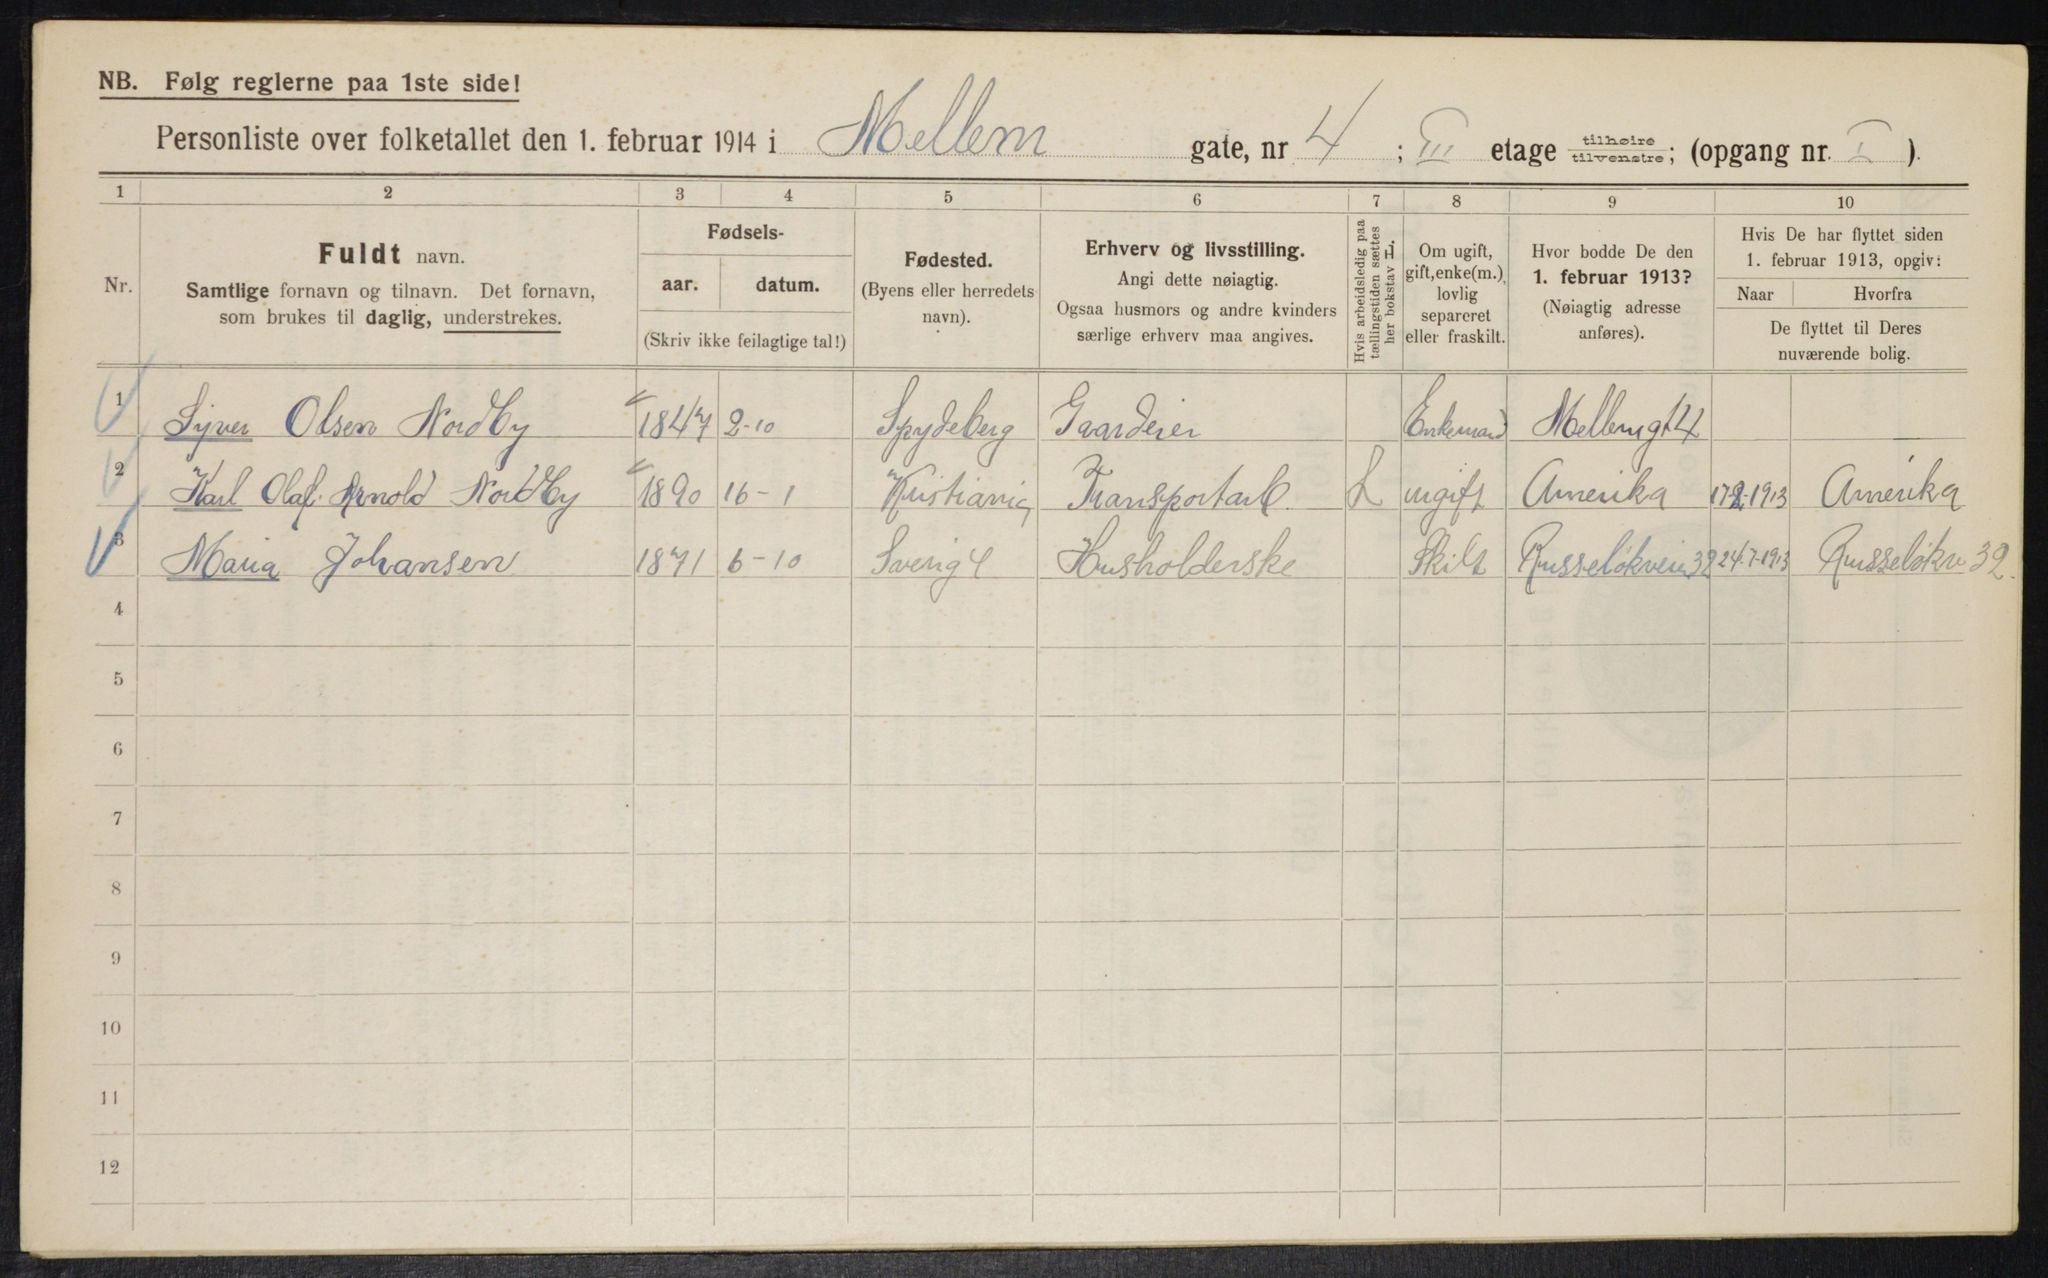 NB. Følg reglerne paa 1ste side!
Personliste over folketallet den 1. februar 1914 i Mellem gate, nr 4 ; III etage tilhøire tilvenstre; (opgang nr. I ).
1 2 3 4 5 6 7 8 9 10
Nr.
Fuldt navn.
Samtlige fornavn og tilnavn. Det fornavn,
som brukes til daglig, understrekes.
Fødsels-
aar. datum.
(Skriv ikke feilagtige tal!)
Fødested.
(Byens eller herredets
navn).
Erhverv og livsstilling.
Angi dette nøiagtig.
Ogsaa husmors og andre kvinders
særlige erhverv maa angives.
Hvis arbeidsledig paa
tællingstiden sættes
her bokstav L.
Om ugift,
gift, enke(m.),
lovlig
separeret
eller fraskilt.
Hvor bodde De den
1. februar 1913?
(Nøiagtig adresse
anføres).
Hvis De har flyttet siden
1. februar 1913, opgiv:
Naar Hvorfra
De flyttet til Deres
nuværende bolig.
1 Syver Olsen Nordby 1847 2-10 Spydeberg Gaardeier Enkemand Mellemgt 4
2 Karl Olaf Arnold Nordby 1890 16-1 Kristiania Transportarb. L ugift Amerika 17-2-1913 Amerika
3 Maria Johansen 1871 6-10 Sverige Husholderske Skilt Russeløkveien 32 24-7-1913 Russeløkv 32.
4
5
6
7
8
9
10
11
12